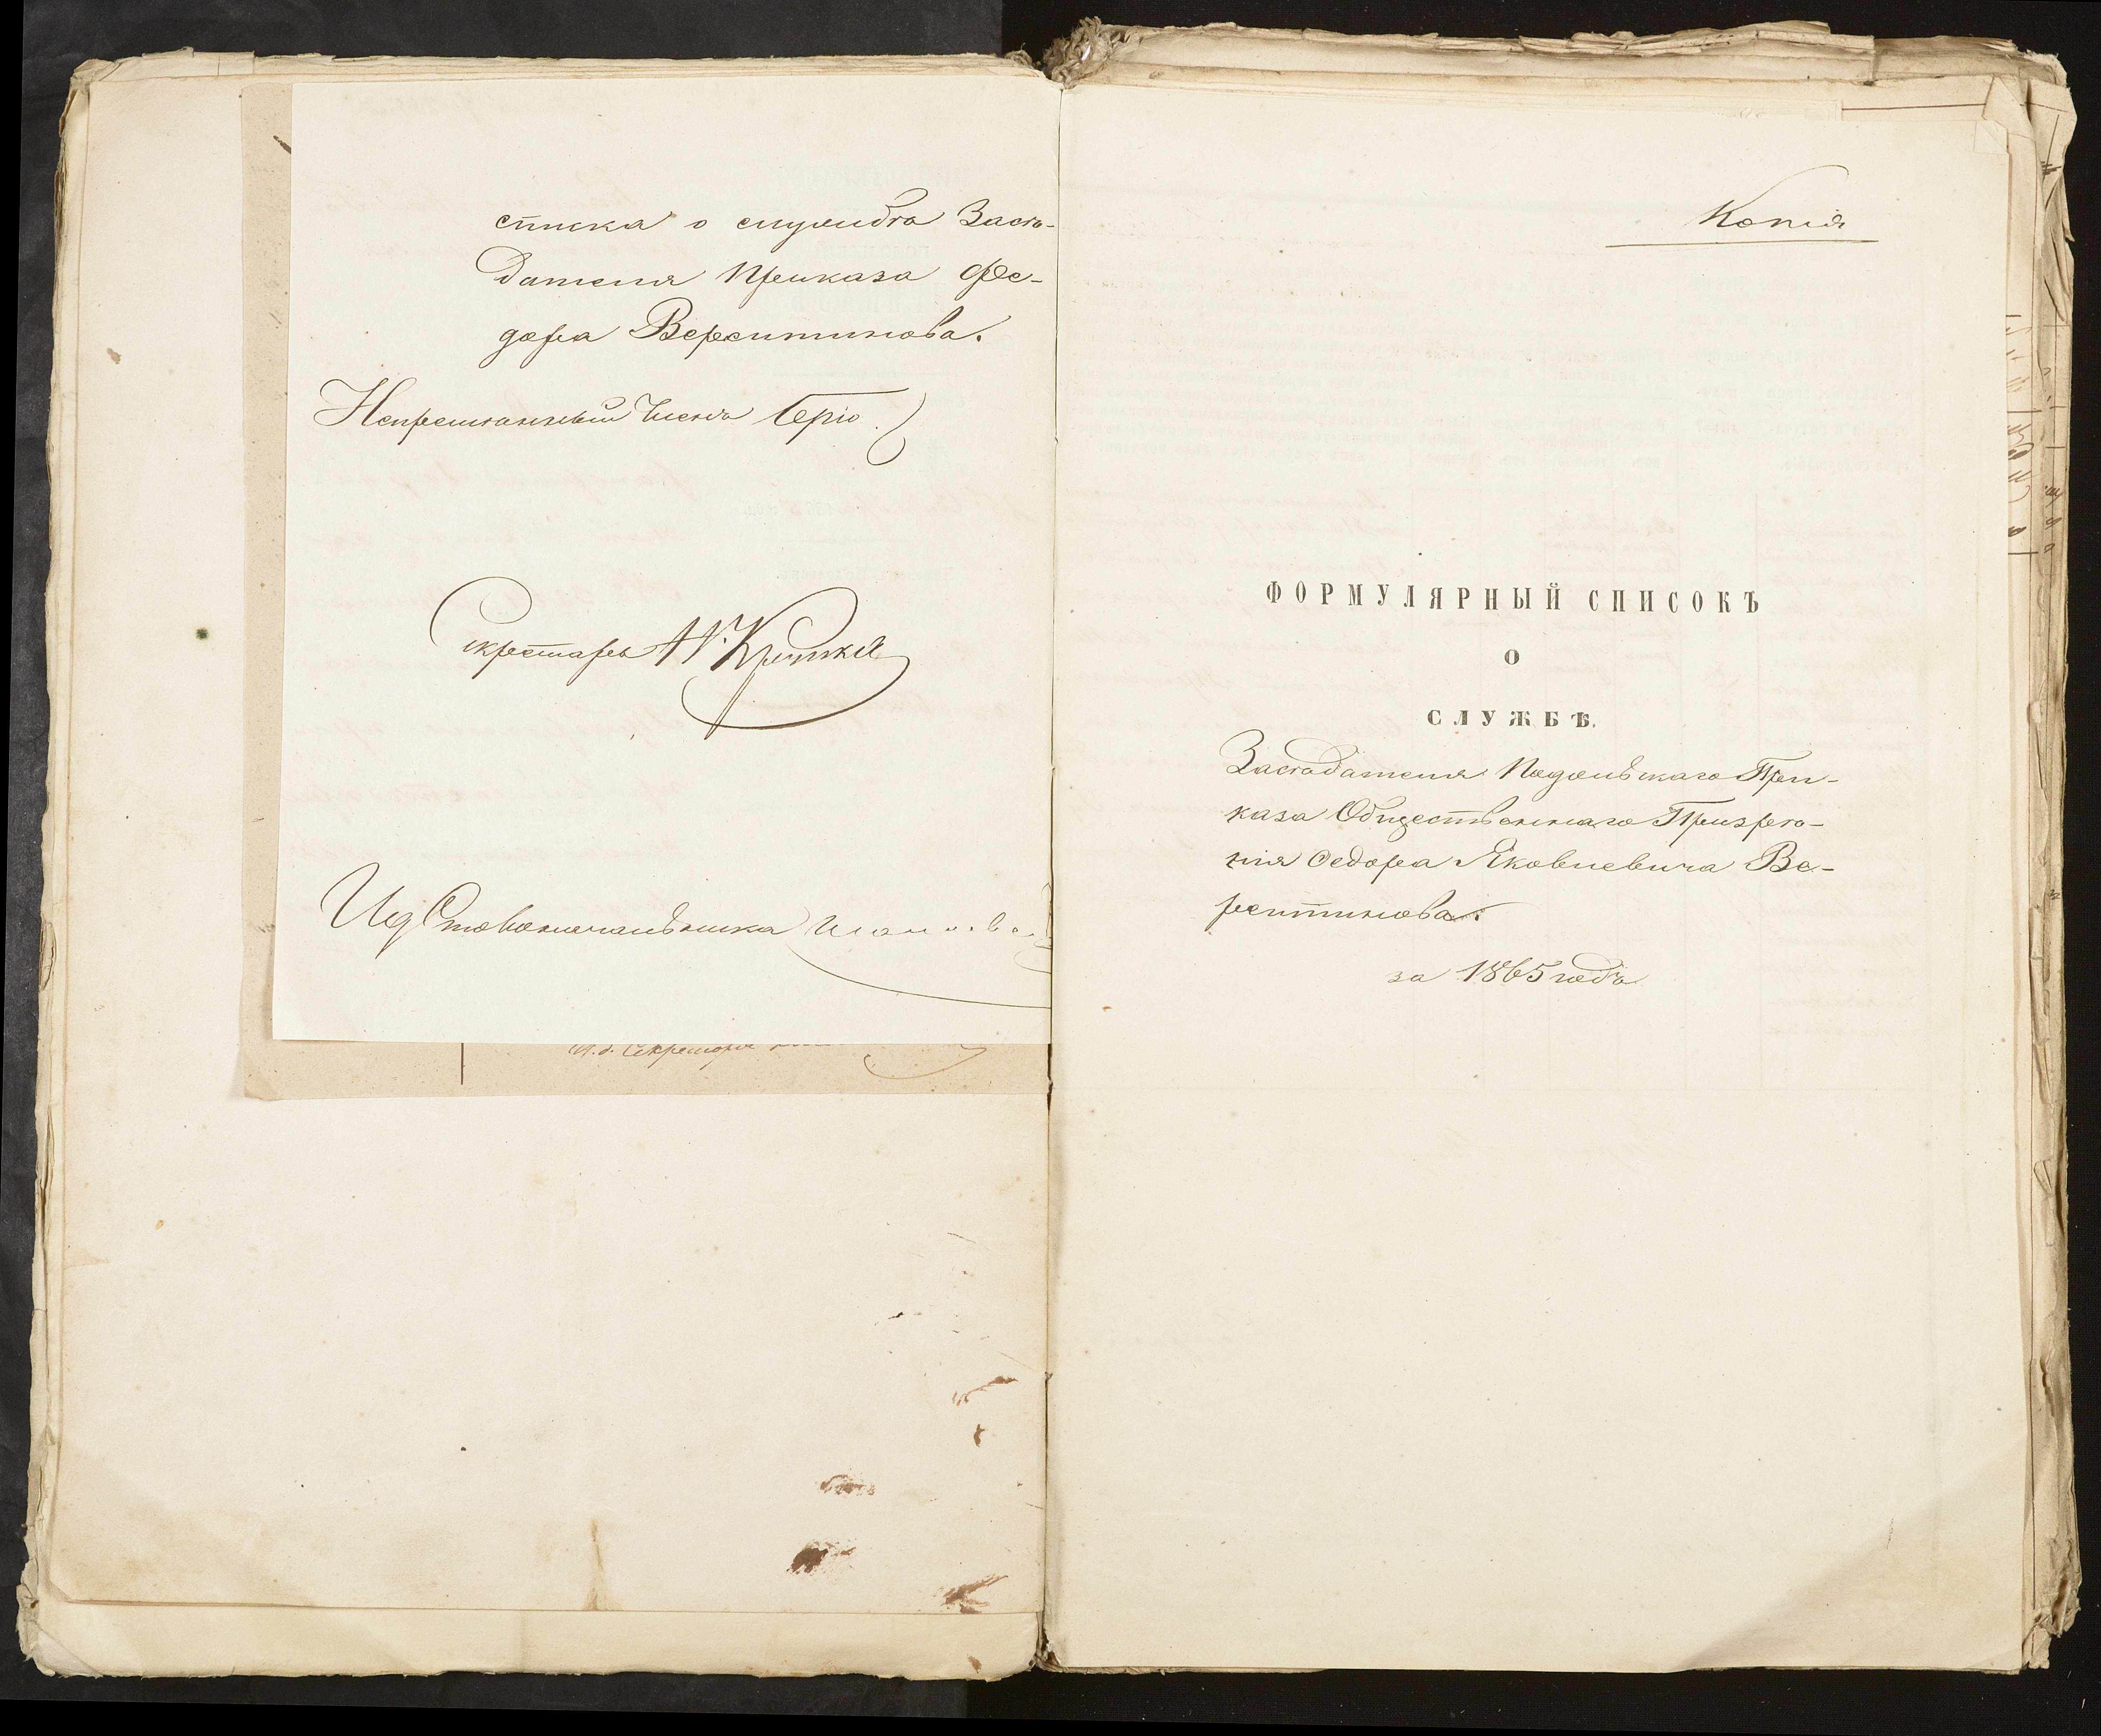 списка о службѣ Засѣ-
дателя Приказа Ѳе-
дора Верситинова.
Непремѣнный Членъ
Секретарь
Ид Столоначальника
Копія
ФОРМУЛЯРНЫЙ СПИСОКЪ
О
СЛУЖБѢ.
Засѣдателя Подольскаго При-
каза Общественнаго Призрѣ-
нія Ѳедора Яковлевича Ве-
рситинова.
за 1865 годъ
И.д. Секретаря